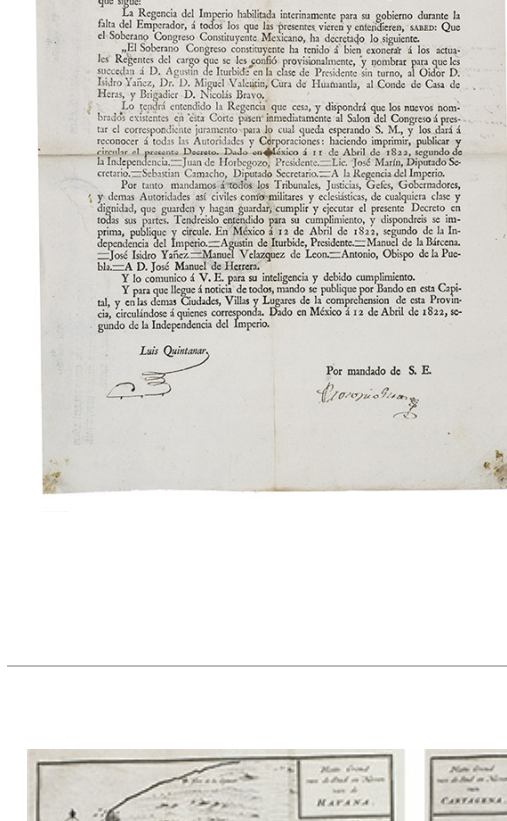 que sigue:
La Regencia del Imperio habilitada interinamente para su gobierno durante la
falta del Emperador, á todos los que las presentes vieren y entendieren, SABED: Que
el Soberano Congreso Constituyente Mexicano, ha decretado lo siguiente.
„El Soberano Congreso constituyente ha tenido á bien exonerar á los actua-
les Regentes del cargo que se les confió provisionalmente, y nombrar para que les
succedan á D. Agustin de Iturbide en la clase de Presidente sin turno, al Oidor D.
Isidro Yañez, Dr. D. Miguel Valentin, Cura de Huamantla, al Conde de Casa de
Heras, y Brigadier D. Nicolás Bravo.
Lo tendrá entendido la Regencia que cesa, y dispondrá que los nuevos nom-
brados existentes en esta Corte pasen inmediatamente al Salon del Congreso á pres-
tar el correspondiente juramento para lo cual queda esperando S. M., y los dará á
reconocer á todas las Autoridades y Corporaciones: haciendo imprimir, publicar y
circular el presente Decreto. Dado en México á 11 de Abril de 1822, segundo de
la Independencia.=Juan de Horbegozo, Presidente.=Lic. José Marin, Diputado Se-
cretario.=Sebastian Camacho, Diputado Secretario.=A la Regencia del Imperio.
Por tanto mandamos á todos los Tribunales, Justicias, Gefes, Gobernadores,
y demas Autoridades asi civiles como militares y eclesiásticas, de cualquiera clase y
dignidad, que guarden y hagan guardar, cumplir y ejecutar el presente Decreto en
todas sus partes. Tendreislo entendido para su cumplimiento, y dispondreis se im-
prima, publique y circule. En México á 12 de Abril de 1822, segundo de la In-
dependencia del Imperio.=Agustin de Iturbide, Presidente.=Manuel de la Bárcena.
=José Isidro Yañez.=Manuel Velazquez de Leon.=Antonio, Obispo de la Pue-
bla.=A D. José Manuel de Herrera.
Y lo comunico á V. E. para su inteligencia y debido cumplimiento.
Y para que llegue á noticia de todos, mando se publique por Bando en esta Capi-
tal, y en las demas Ciudades, Villas y Lugares de la comprehension de esta Provin-
cia, circulándose á quienes corresponda. Dado en México á 12 de Abril de 1822, se-
gundo de la Independencia del Imperio.
Luis Quintanar.
Por mandado de S. E.
Platte Grond
van de Stad en Haven
van de
HAVANA.
Platte Grond
van de Stad en Haven
CARTAGENA